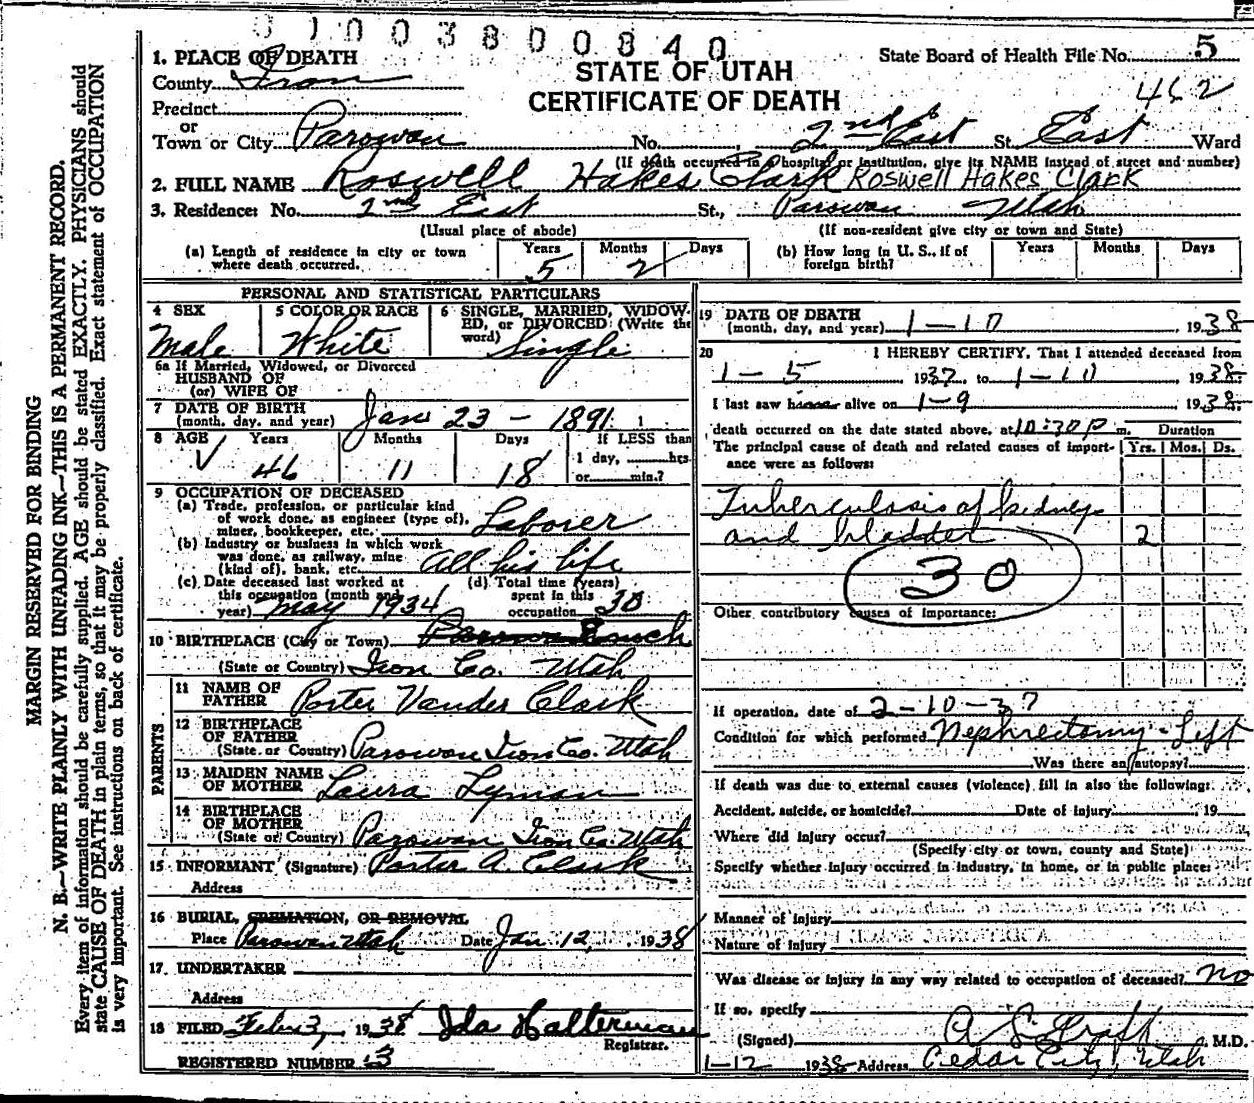 0 1 0 0 3 8 0 0 0 4 0
State Board of Health File No. 5
STATE OF UTAH
CERTIFICATE OF DEATH
462
1. PLACE OF DEATH
County Iron
Precinct
or
Town or City Parowan No. 2nd East St. East Ward
(If death occurred in a hospital or institution, give its NAME instead of street and number)
2. FULL NAME Roswell Hakes Clark Roswell Hakes Clark
3. Residence: No. 2nd East St., Parowan Utah
(Usual place of abode) (If non-resident give city or town and State)
(a) Length of residence in city or town where death occurred. Years 5 Months 2 Days
(b) How long in U. S., if of foreign birth? Years Months Days
PERSONAL AND STATISTICAL PARTICULARS
4 SEX Male
5 COLOR OR RACE White
6 SINGLE, MARRIED, WIDOWED, or DIVORCED: (Write the word) Single
6a If Married, Widowed, or Divorced
HUSBAND OF
(or) WIFE OF
7 DATE OF BIRTH
(month, day, and year) Jan 23 - 1891
8 AGE Years 46 Months 11 Days 18 If LESS than 1 day, hrs. or min.?
9 OCCUPATION OF DECEASED
(a) Trade, profession, or particular kind of work done, as engineer (type of), miner, bookkeeper, etc. Laborer
(b) Industry or business in which work was done, as railway, mine (kind of), bank, etc. All his life
(c) Date deceased last worked at this occupation (month and year) May 1934
(d) Total time (years) spent in this occupation 30
10 BIRTHPLACE (City or Town) Parowan
(State or Country) Iron Co. Utah
PARENTS
11 NAME OF FATHER Porter Vander Clark
12 BIRTHPLACE OF FATHER
(State or Country) Parowan Iron Co. Utah
13 MAIDEN NAME OF MOTHER Laura Lyman
14 BIRTHPLACE OF MOTHER
(State or Country) Parowan Iron Co. Utah
15 INFORMANT (Signature) Porter A. Clark
Address
16 BURIAL, CREMATION, OR REMOVAL
Place Parowan Utah Date Jan 12, 1938
17. UNDERTAKER
Address
18 FILED Feb. 3, 1938 Ida Halterman
Registrar.
REGISTERED NUMBER 3
19 DATE OF DEATH
(month, day, and year) 1-10, 1938
20 I HEREBY CERTIFY, That I attended deceased from
1-5 1937, to 1-10 1938.
I last saw him alive on 1-9 1938.
death occurred on the date stated above, at 10:30 P m.
The principal cause of death and related causes of importance were as follows:
Duration
Yrs. Mos. Ds.
Tuberculosis of kidneys
and bladder 2
30
Other contributory causes of importance:
If operation, date of 2-10-37
Condition for which performed Nephrectomy - Left
Was there an autopsy?
If death was due to external causes (violence) fill in also the following:
Accident, suicide, or homicide? Date of injury 19
Where did injury occur?
(Specify city or town, county and State)
Specify whether injury occurred in industry, in home, or in public place:
Manner of injury
Nature of injury
Was disease or injury in any way related to occupation of deceased? No
If so, specify
(Signed) M.D.
1-12 1938 Address Cedar City, Utah
MARGIN RESERVED FOR BINDING
N. B.—WRITE PLAINLY WITH UNFADING INK—THIS IS A PERMANENT RECORD.
Every item of information should be carefully supplied. AGE should be stated EXACTLY. PHYSICIANS should
state CAUSE OF DEATH in plain terms, so that it may be properly classified. Exact statement of OCCUPATION
is very important. See instructions on back of certificate.